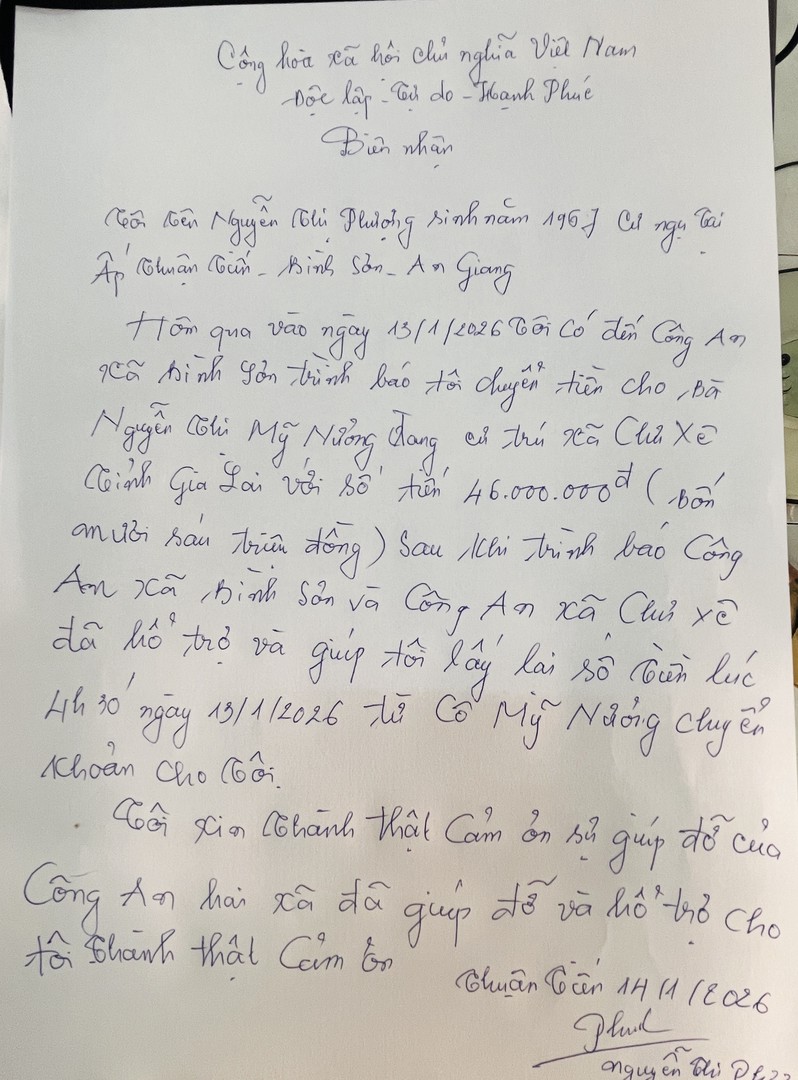 Cộng hòa xã hôi chủ nghĩa Việt Nam
Độc lập - Tự do - Hạnh Phúc
Biên nhận
Tôi tên Nguyễn Thị Phượng sinh năm 1967 cư ngụ tại
Ấp Thuận Tiến - Bình Sơn - An Giang
Hôm qua vào ngày 13/1/2026 Tôi có đến Công An
xã Bình Sơn trình báo tôi chuyển tiền cho Bà
Nguyễn Thị Mỹ Nương đang cư trú xã Chư Xê
Tỉnh Gia Lai với số tiền 46.000.000đ ( Bốn
mươi sáu triệu đồng ) Sau khi trình báo Công
An xã Bình Sơn và Công An xã Chư Xê
đã hổ trợ và giúp tôi lấy lai số tiền lúc
4h 30' ngày 13/1/2026 từ Cô Mỹ Nương chuyển
khoản cho tôi.
Tôi xin thành thật cảm ơn sự giúp đỡ của
Công An hai xã đã giúp đỡ và hổ trợ cho
tôi thành thật cảm ơn
Thuận Tiến 14/1/2026
Nguyễn Thị